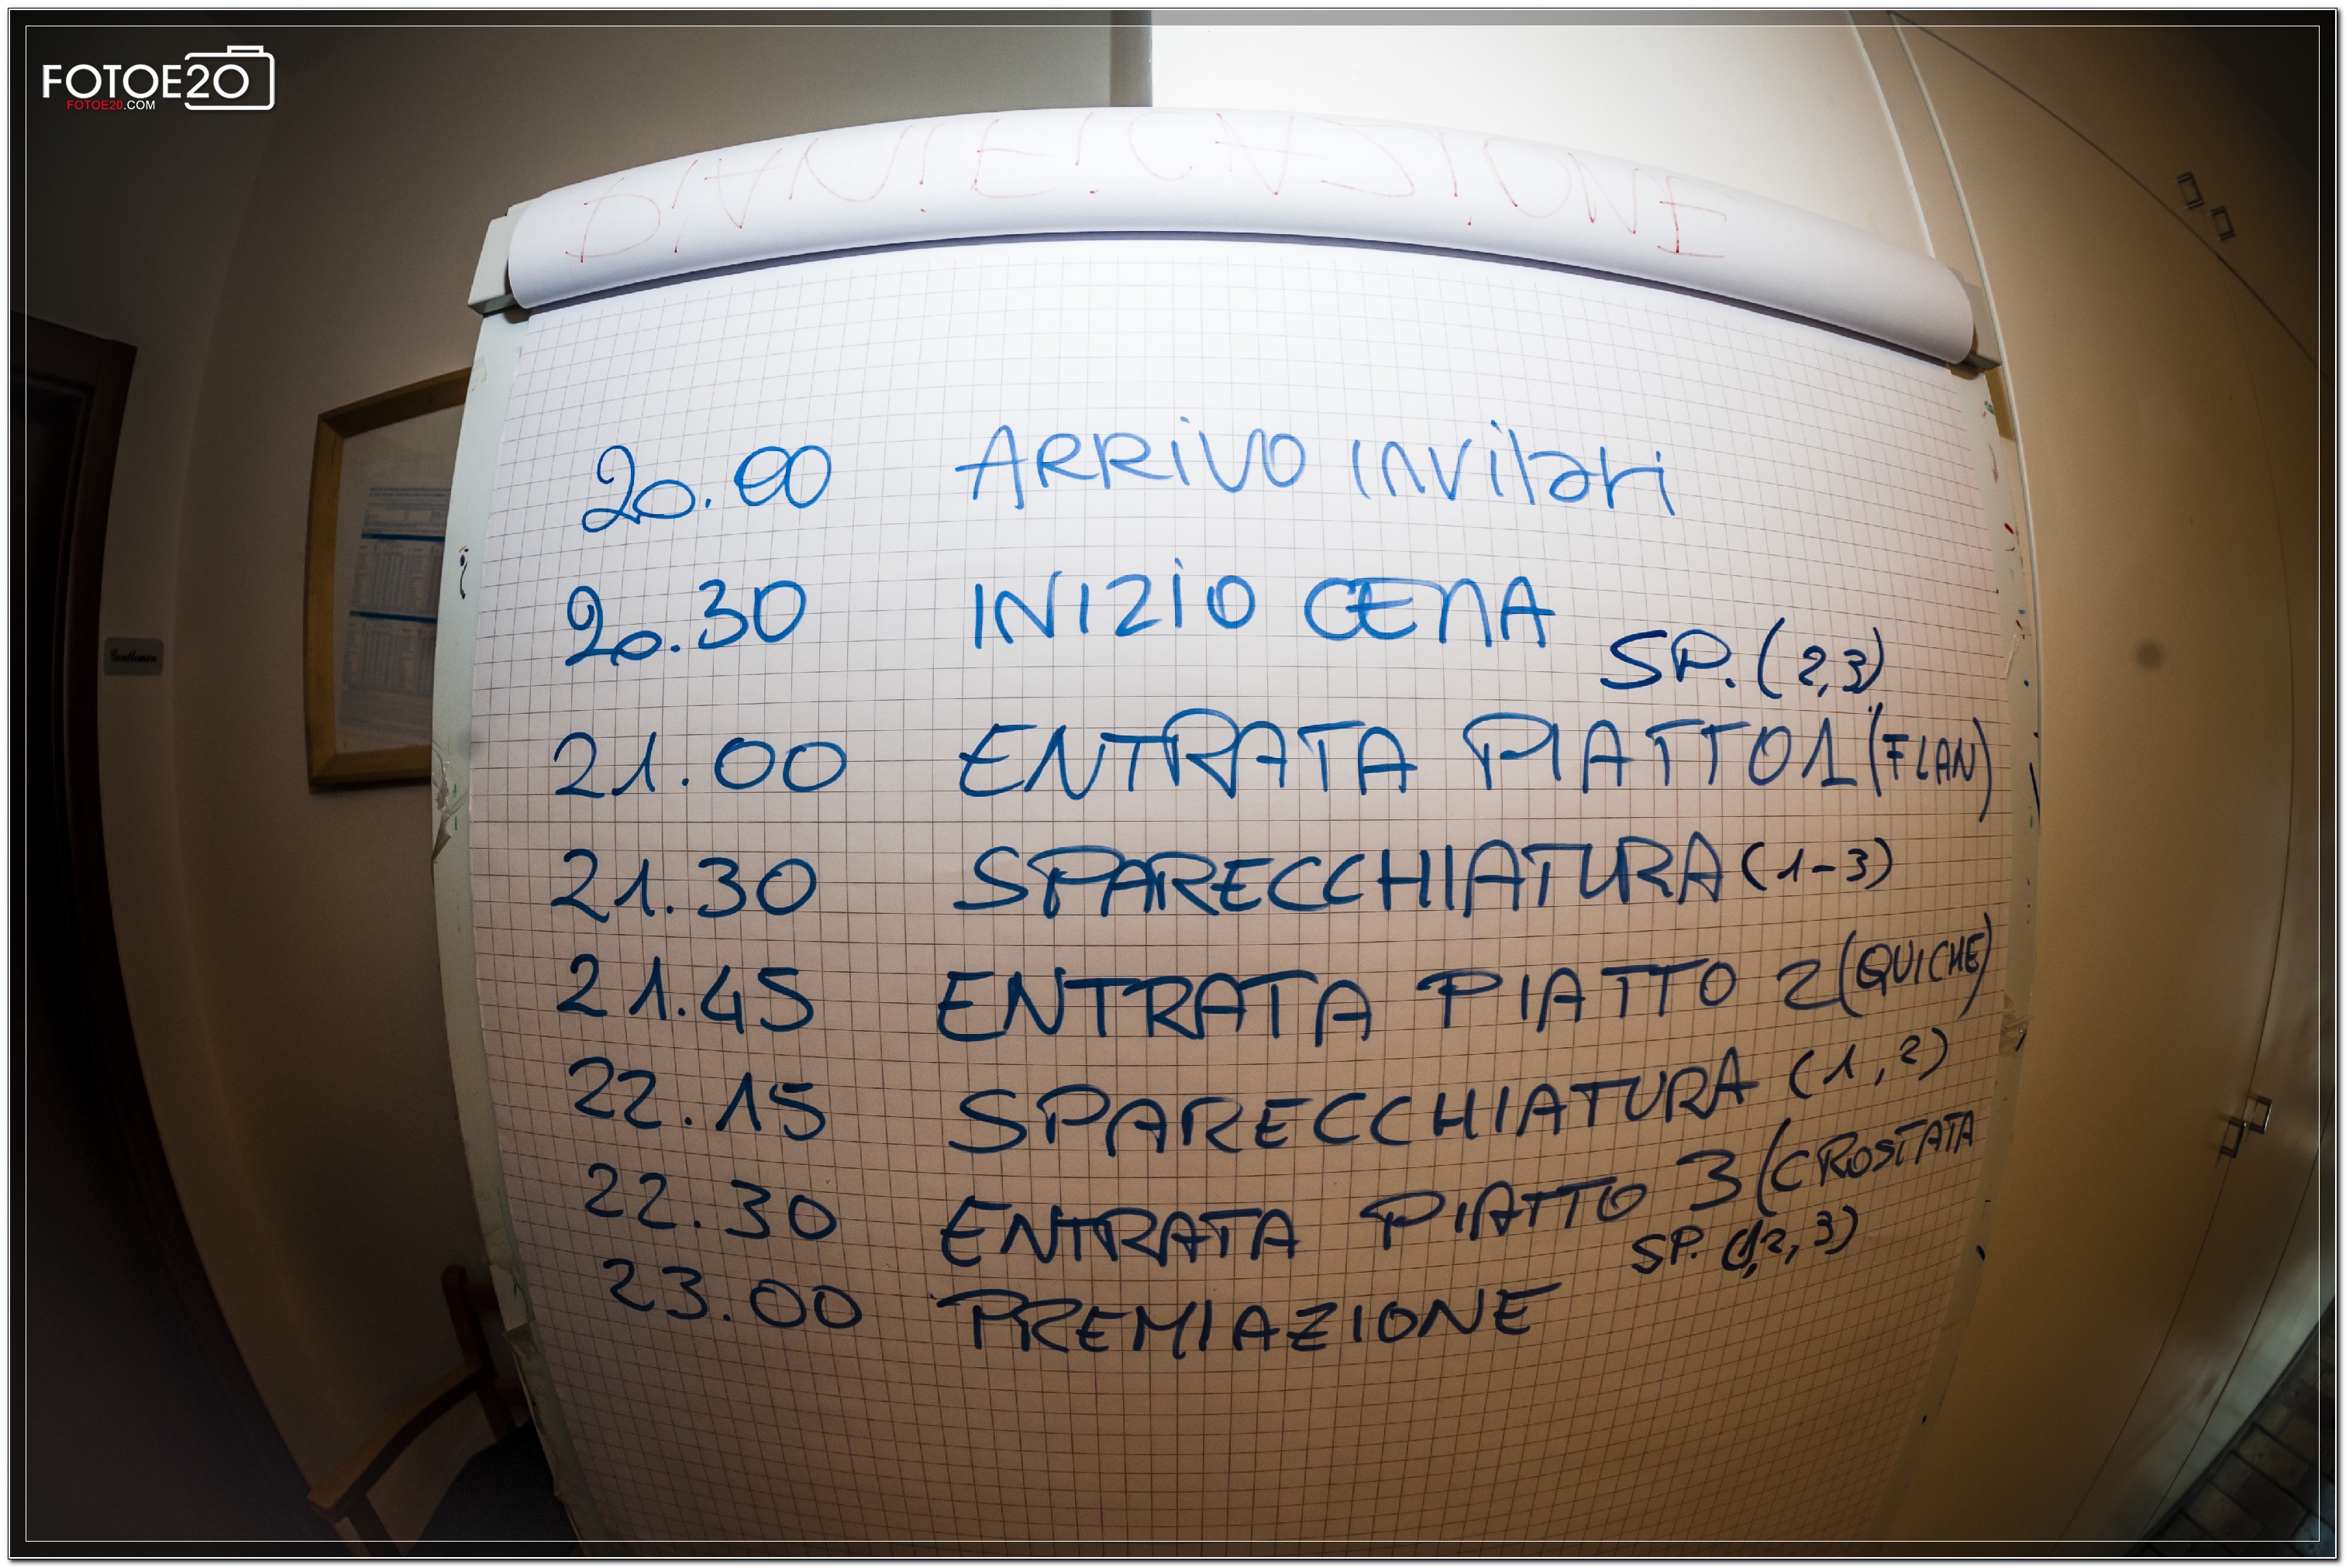 FOTOE20
FOTOE20.COM
PIANIFICAZIONE
20.00 ARRIVO invitati
20.30 INIZIO CENA
SP. (2,3)
21.00 ENTRATA PIATTO 1 (FLAN)
21.30 SPARECCHIATURA (1-3)
21.45 ENTRATA PIATTO 2 (QUICHE)
22.15 SPARECCHIATURA (1,2)
22.30 ENTRATA PIATTO 3 (CROSTATA
SP. (1,2,3)
23.00 PREMIAZIONE
Gentlemen